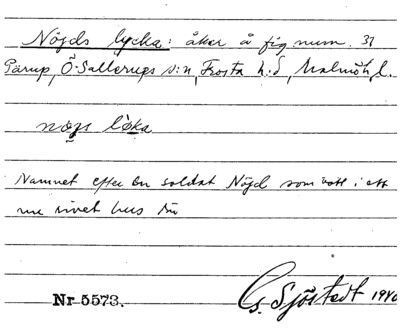 Nöjds lycka: åker å fig num. 31
Pärup, Ö. Sallerups s:n, Frosta h:d, Malmöh. l.
nøjs løka
Namnet efter en soldat Nöjd som bott i ett
nu rivet hus
Nr 5573.
G. Sjöstedt 1940